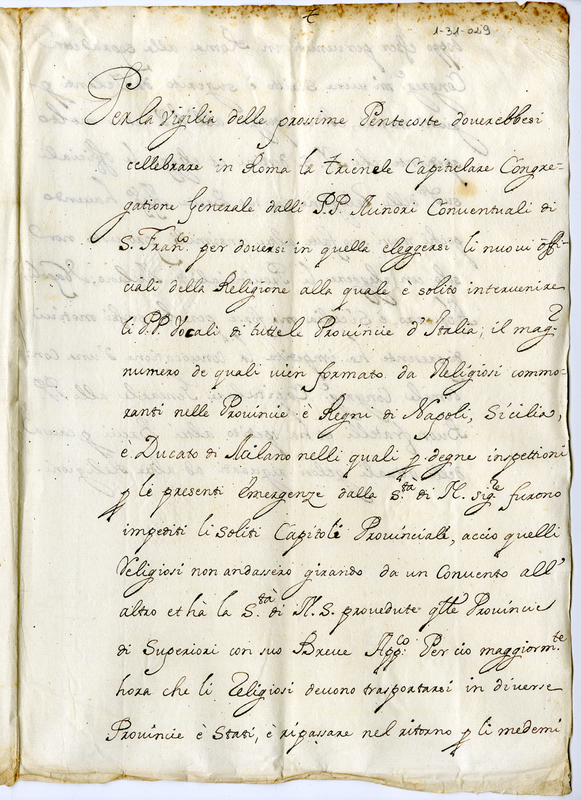 1-31-029
Per la Vigilia delle prossime Pentecoste doverebbesi
cellebrare in Roma la trienele Capitelare Congre=
gatione Generale dalli P.P. Minori Conventuali di
S. Franco. per doversi in quella eleggersi li nuovi offi=
ciali della Religione alla quale è solito intervenire
li P.P. Vocali di tutte le Provincie d'Italia; il magr
numero de quali vien formato da Religiosi commo=
ranti nelle Provincie è Regni di Napoli, Sicilia,
e Ducato di Milano nelli quali p degne inspettioni
p le presenti Emergenze dalla S.tà di N. sigre furono
impediti li soliti Capitoli Provinciali, accio quelli
Religiosi non andassero girando da un Convento all'
altro et hà la S.tà di N. S. provedute qlle Provincie
di Superiori con suo Breve Appco: Per cio maggiorm.te
hora che li Religiosi devono trasportarsi in diverse
Provincie è Stati, è ripassare nel ritorno p li medemi